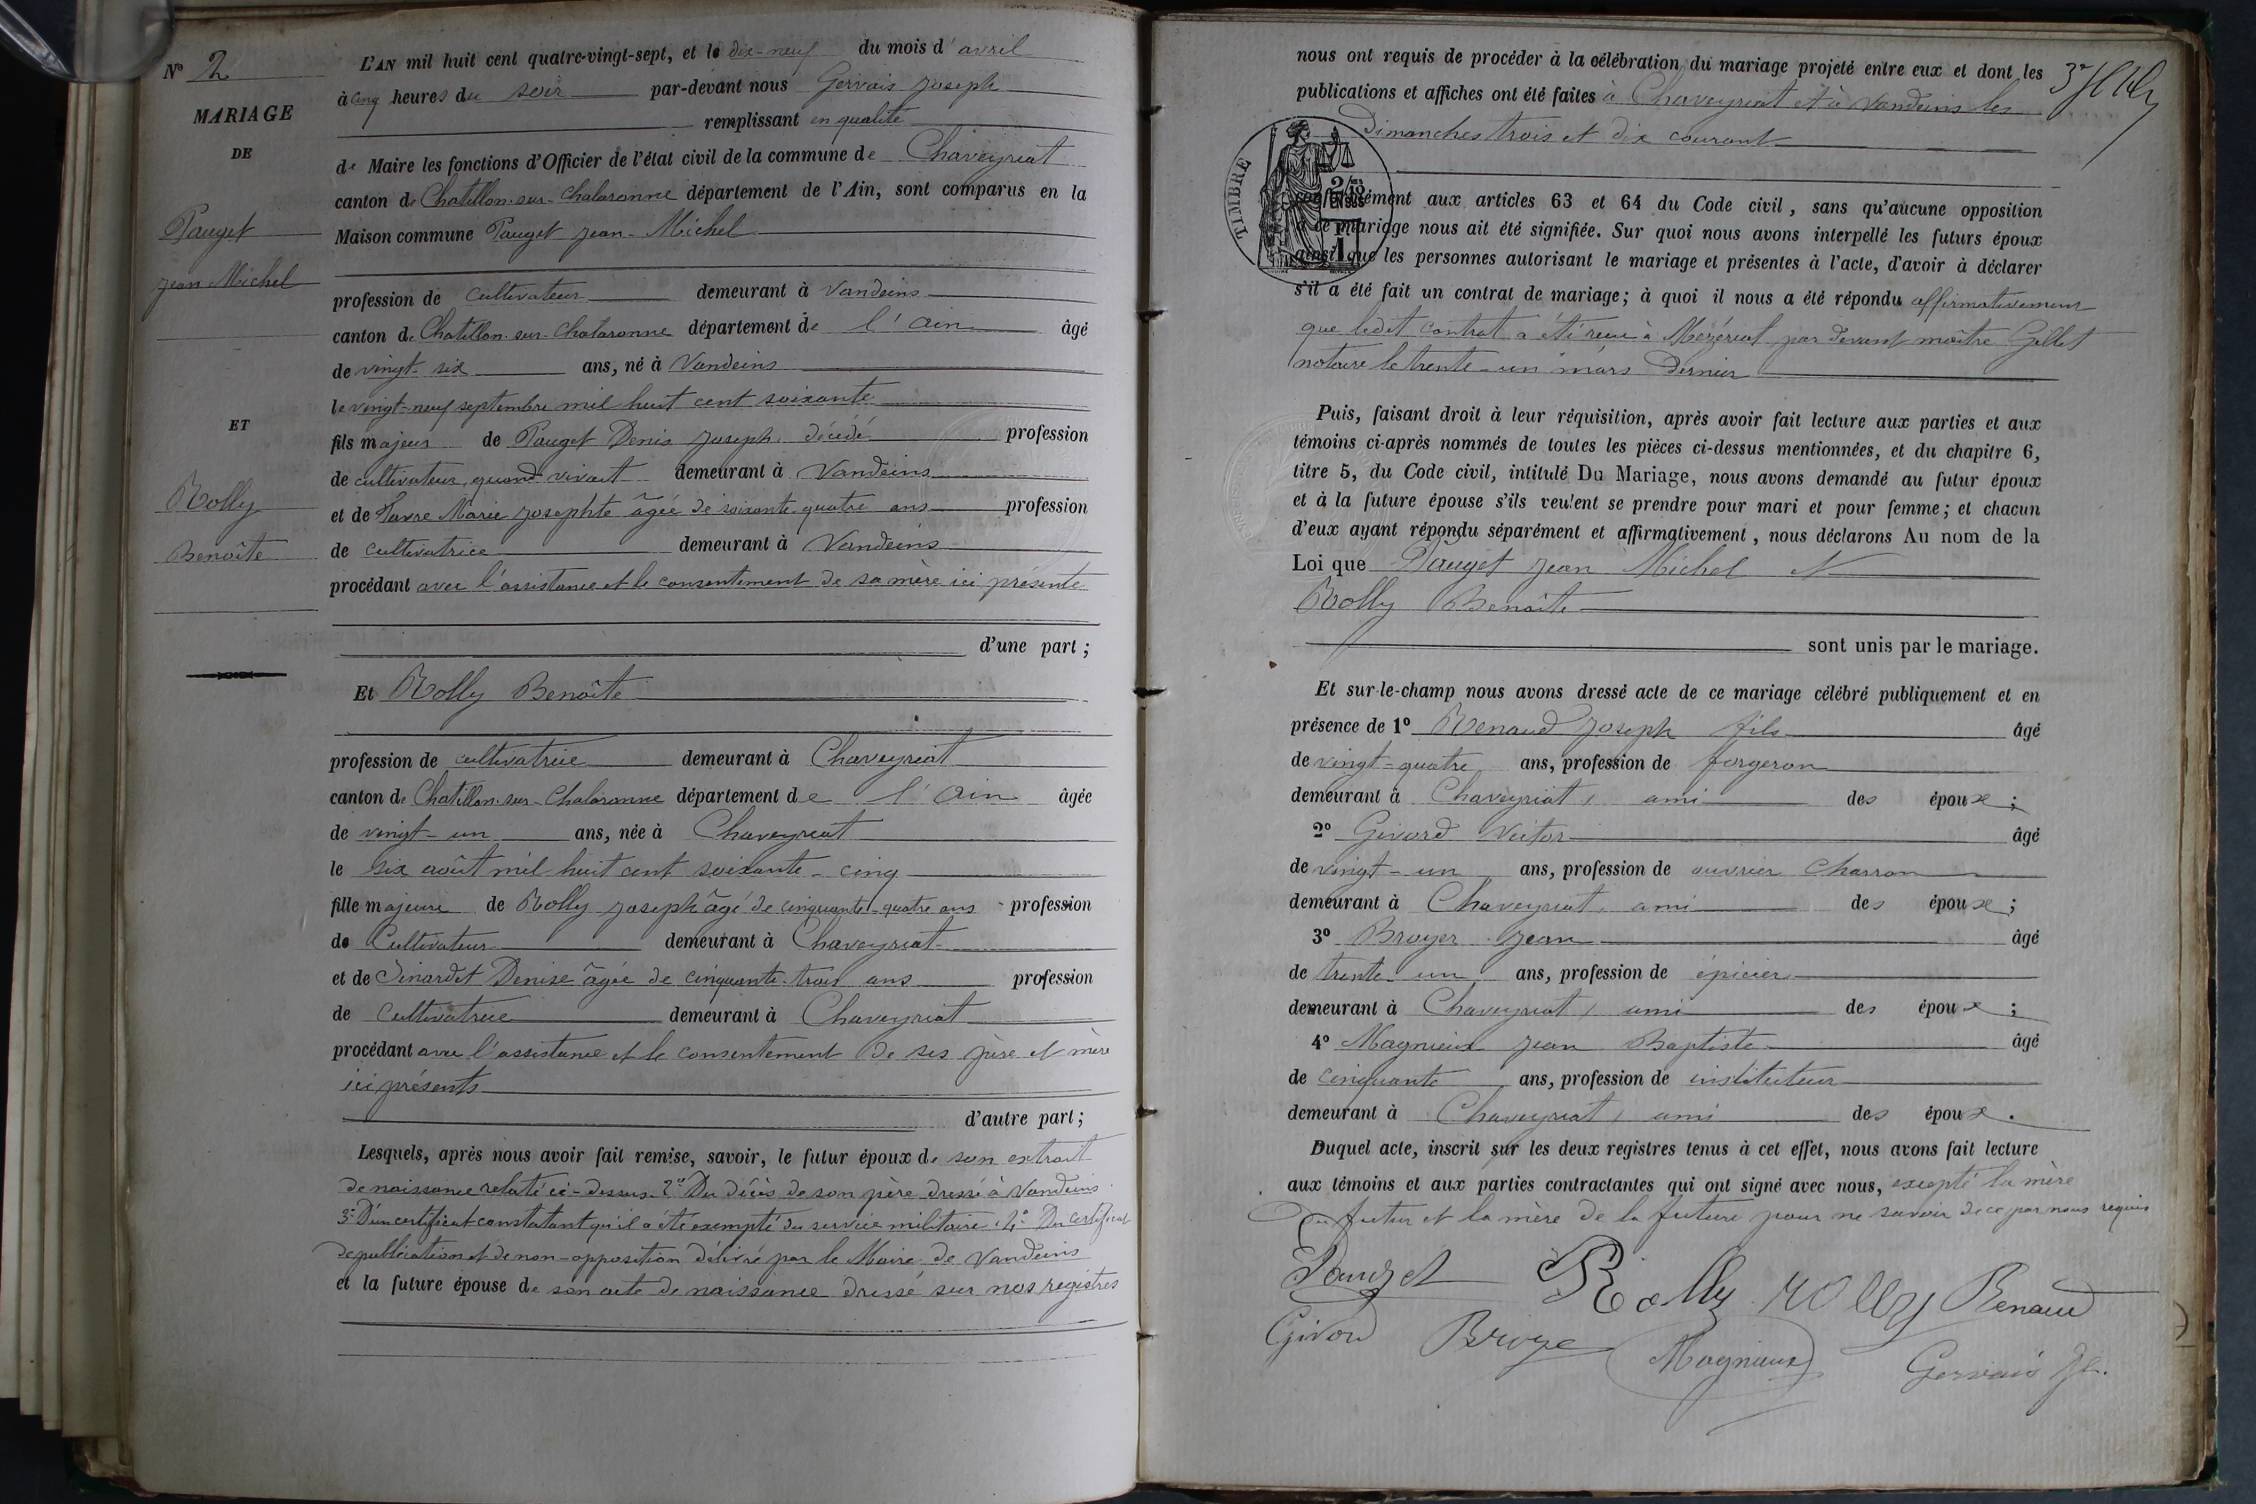 N° 2
MARIAGE
DE
Pauget
Jean Michel
ET
Rolly
Benoîte
L'AN mil huit cent quatre-vingt-sept, et le dix-neuf du mois d'avril
à cinq heures du soir par-devant nous Gervais Joseph
remplissant en qualité
de Maire les fonctions d'Officier de l'état civil de la commune de Chaveyriat
canton de Chatillon-sur-Chalaronne département de l'Ain, sont comparus en la
Maison commune Pauget Jean-Michel
profession de cultivateur demeurant à Vandeins
canton de Chatillon-sur-Chalaronne département de l'Ain âgé
de vingt-six ans, né à Vandeins
le vingt-neuf septembre mil huit cent soixante
fils majeur de Pauget Denis Joseph, décédé profession
de cultivateur quand vivait demeurant à Vandeins
et de Favre Marie Josephte âgée de soixante-quatre ans profession
de cultivatrice demeurant à Vandeins
procédant avec l'assistance et le consentement de sa mère ici présente
d'une part ;
Et Rolly Benoîte
profession de cultivatrice demeurant à Chaveyriat
canton de Chatillon-sur-Chalaronne département de l'Ain âgée
de vingt-un ans, née à Chaveyriat
le six août mil huit cent soixante-cinq
fille majeure de Rolly Joseph âgé de cinquante-quatre ans profession
de Cultivateur demeurant à Chaveyriat
et de Sinardet Denise âgée de cinquante-trois ans profession
de Cultivatrice demeurant à Chaveyriat
procédant avec l'assistance et le consentement de ses père et mère
ici présents
d'autre part ;
Lesquels, après nous avoir fait remise, savoir, le futur époux de son extrait
de naissance relaté ci-dessus. 2° Du décès de son père dressé à Vandeins.
3° D'un certificat constatant qu'il a été exempté du service militaire. 4° Du certificat
de publication et de non-opposition délivré par le Maire de Vandeins
et la future épouse de son acte de naissance dressé sur nos registres
nous ont requis de procéder à la célébration du mariage projeté entre eux et dont les
publications et affiches ont été faites à Chaveyriat et à Vandeins les
Dimanches trois et dix courant
TIMBRE
conformément aux articles 63 et 64 du Code civil, sans qu'aucune opposition
à ce mariage nous ait été signifiée. Sur quoi nous avons interpellé les futurs époux
ainsi que les personnes autorisant le mariage et présentes à l'acte, d'avoir à déclarer
s'il a été fait un contrat de mariage ; à quoi il nous a été répondu affirmativement
que ledit contrat a été reçu à Mézériat par devant maître Gillet
notaire le trente-un mars dernier
Puis, faisant droit à leur réquisition, après avoir fait lecture aux parties et aux
témoins ci-après nommés de toutes les pièces ci-dessus mentionnées, et du chapitre 6,
titre 5, du Code civil, intitulé Du Mariage, nous avons demandé au futur époux
et à la future épouse s'ils veulent se prendre pour mari et pour femme ; et chacun
d'eux ayant répondu séparément et affirmativement, nous déclarons Au nom de la
Loi que Pauget Jean Michel et
Rolly Benoîte
sont unis par le mariage.
Et sur-le-champ nous avons dressé acte de ce mariage célébré publiquement et en
présence de 1° Renaud Joseph fils âgé
de vingt-quatre ans, profession de forgeron
demeurant à Chaveyriat, ami des époux ;
2° Givord Victor âgé
de vingt-un ans, profession de ouvrier Charron
demeurant à Chaveyriat, ami des époux ;
3° Broyer Jean âgé
de trente-un ans, profession de épicier
demeurant à Chaveyriat, ami des époux ;
4° Magnieux Jean Baptiste âgé
de cinquante ans, profession de instituteur
demeurant à Chaveyriat, ami des époux.
Duquel acte, inscrit sur les deux registres tenus à cet effet, nous avons fait lecture
aux témoins et aux parties contractantes qui ont signé avec nous, excepté la mère
du futur et la mère de la future pour ne savoir de ce par nous requis
Pauget Rolly Rolly Renaud
Givord Broye Magnieux Gervais